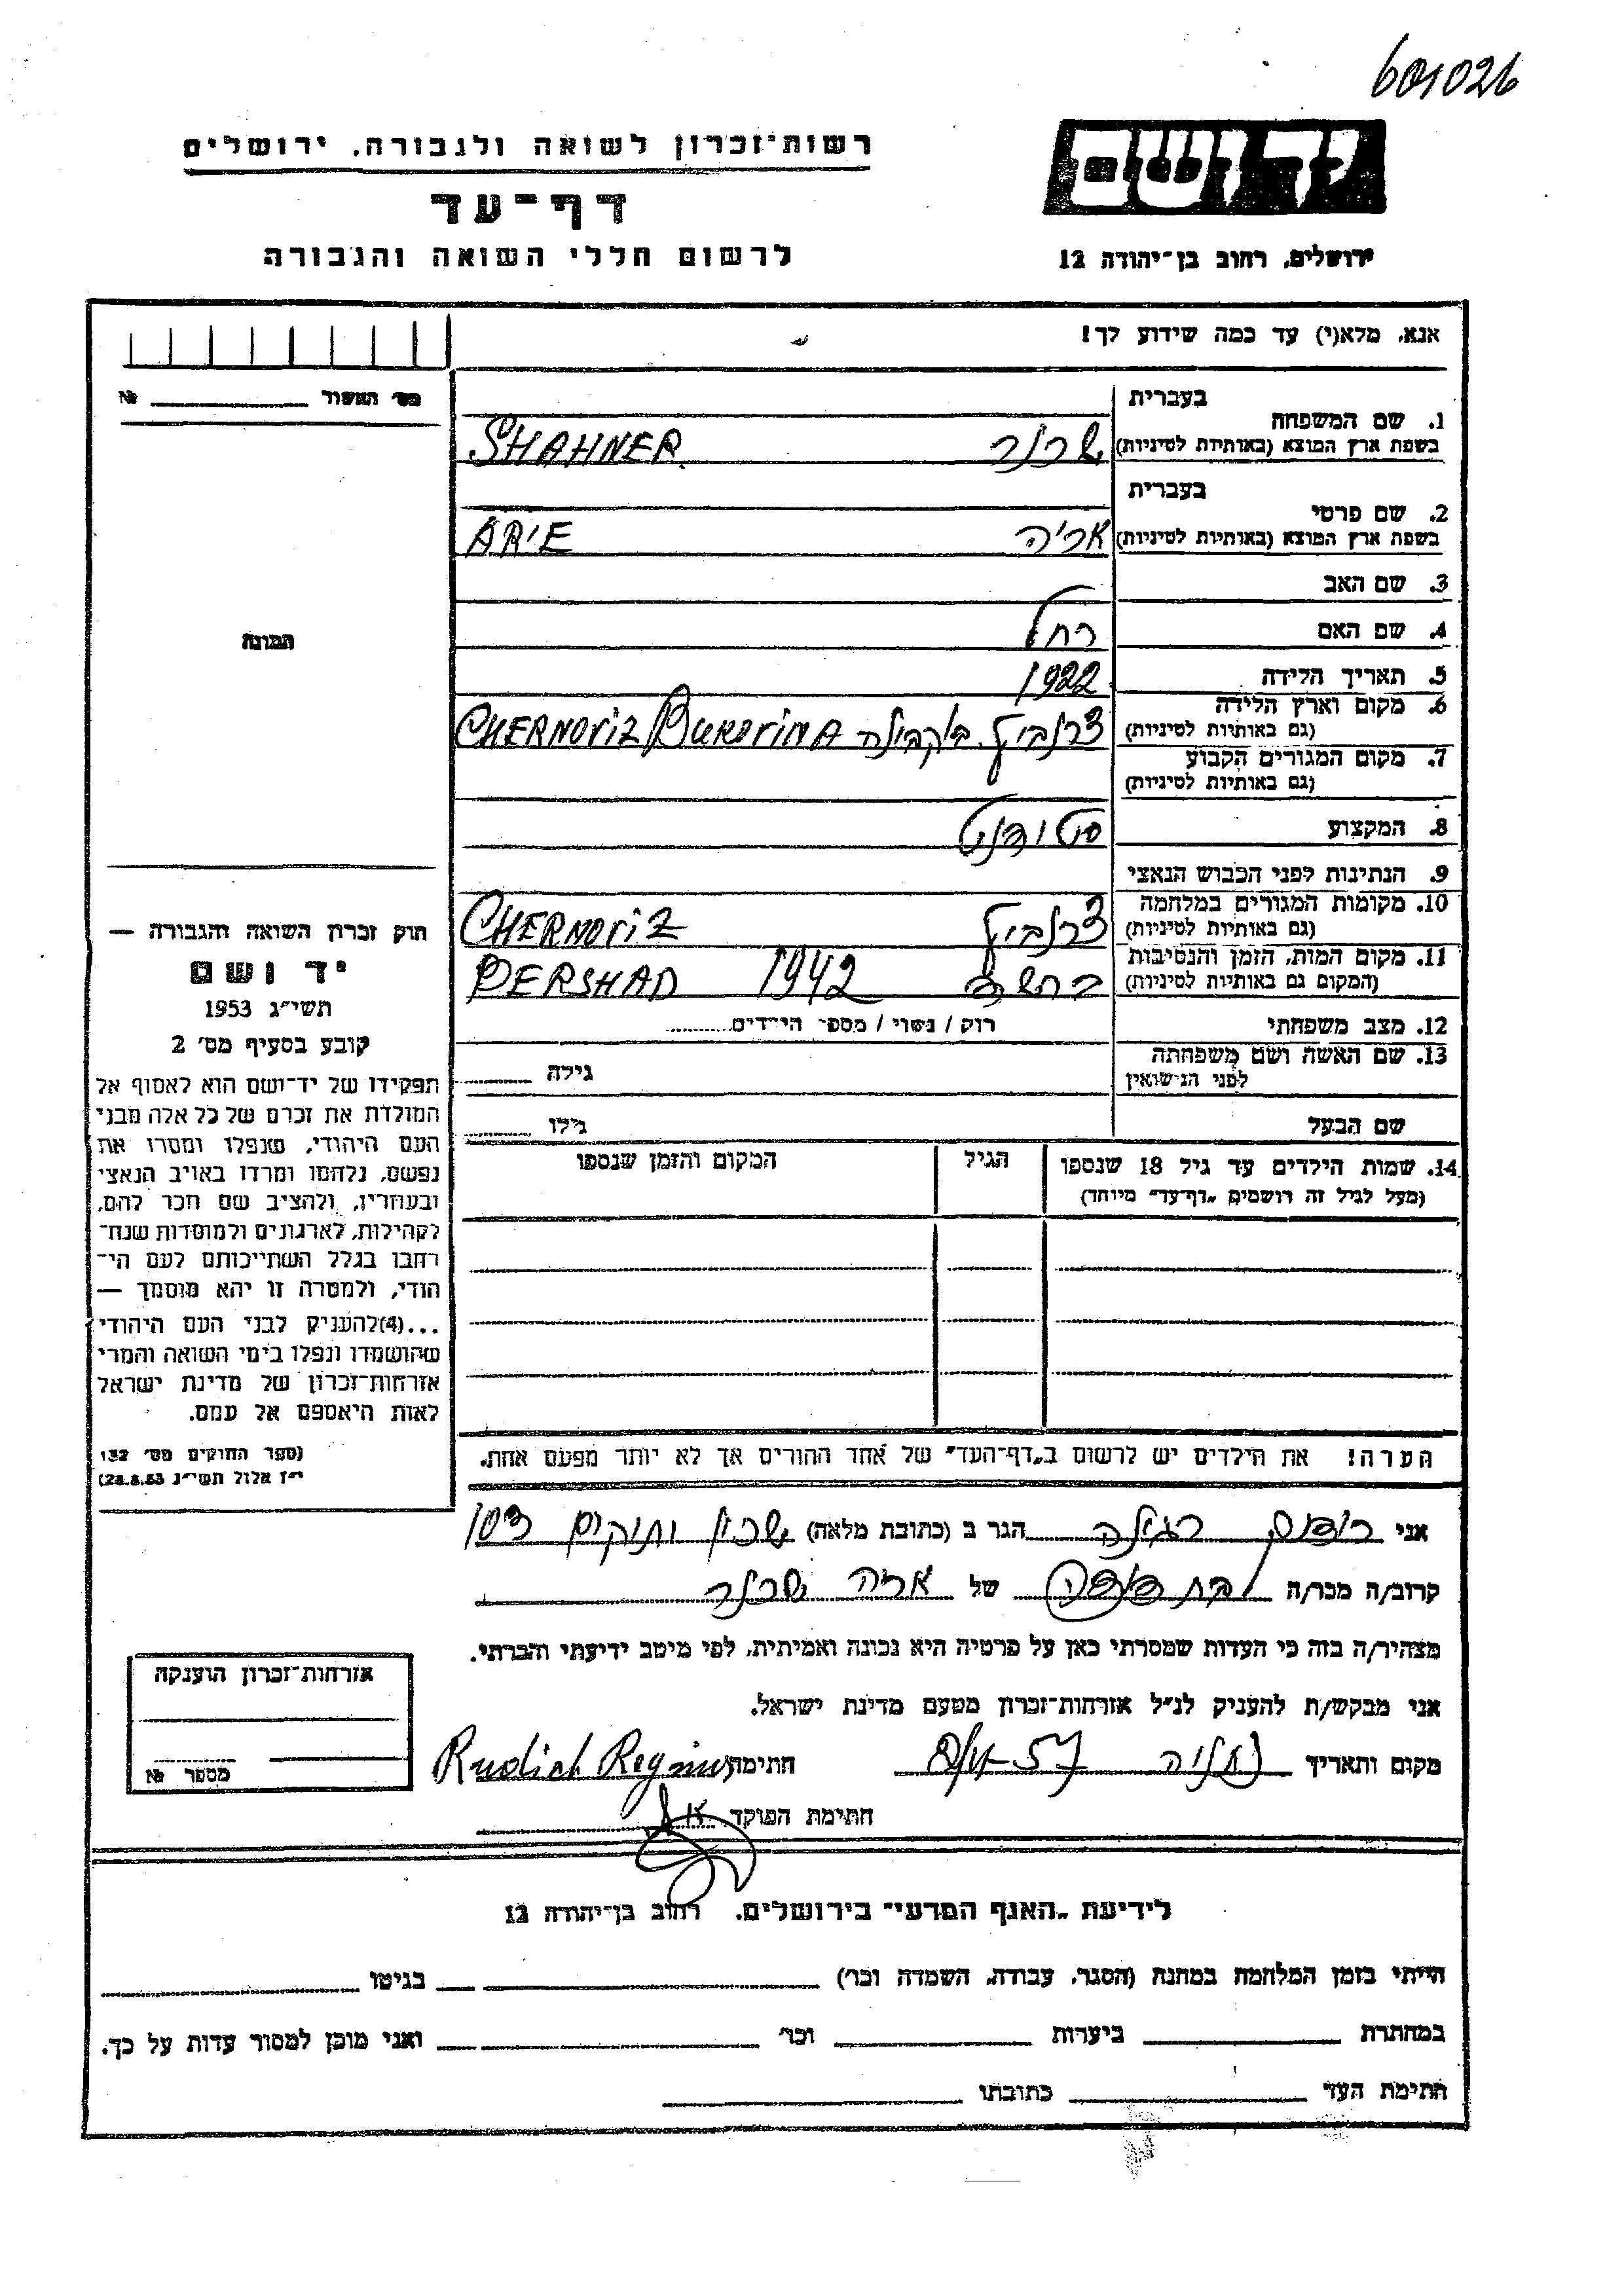 601026
רשות־זכרון לשואה ולגבורה, ירושלים
יד ושם
דף־עד
לרשום חללי השואה והגבורה
ירושלים, רחוב בן־יהודה 12
אנא, מלא(י) עד כמה שידוע לך!
מס׳ האשור №
בעברית
1. שם המשפחה
בשפת ארץ המוצא (באותיות לטיניות) שרנר SHAHNER
בעברית
2. שם פרטי
בשפת ארץ המוצא (באותיות לטיניות) אריה ARIE
3. שם האב
4. שם האם רחל
5. תאריך הלידה 1922
6. מקום וארץ הלידה
(גם באותיות לטיניות) צרנוביץ בוקבינה CHERNOVIZ BUKOVINA
7. מקום המגורים הקבוע
(גם באותיות לטיניות)
8. המקצוע סטודנט
9. הנתינות לפני הכבוש הנאצי
10. מקומות המגורים במלחמה
(גם באותיות לטיניות) צרנוביץ CHERNOVIZ
11. מקום המות, הזמן והנסיבות
(המקום גם באותיות לטיניות) ברשד 1942 BERSHAD
12. מצב משפחתי רוק / נשוי / מספר הילדים
13. שם האשה ושם משפחתה
לפני הנישואין גילה
שם הבעל גילו
14. שמות הילדים עד גיל 18 שנספו הגיל המקום והזמן שנספו
(מעל לגיל זה רושמים „דף־עד” מיוחד)
הערה! את הילדים יש לרשום ב„דף־העד” של אחד ההורים אך לא יותר מפעם אחת.
תמונה
חוק זכרון השואה והגבורה —
יד ושם
תשי״ג 1953
קובע בסעיף מס׳ 2
תפקידו של יד־ושם הוא לאסוף אל
המולדת את זכרם של כל אלה מבני
העם היהודי, שנפלו ומסרו את
נפשם, נלחמו ומרדו באויב הנאצי
ובעוזריו, ולהציב שם וזכר להם,
לקהילות, לארגונים ולמוסדות שנח־
רחבו בגלל השתייכותם לעם הי־
הודי, ולמטרה זו יהא מוסמך —
...(4)להעניק לבני העם היהודי
שהושמדו ונפלו בימי השואה והמרי
אזרחות־זכרון של מדינת ישראל
לאות היאספם אל עמם.
(ספר החוקים מס׳ 132
י״ז אלול תשי״ג 28.8.53)
אני רודיק רגינה הגר ב (כתובת מלאה) שכון ותיקים 103
קרוב/ה מכר/ה בת דודה של אריה שרנר
מצהיר/ה בזה כי העדות שמסרתי כאן על פרטיה היא נכונה ואמיתית, לפי מיטב ידיעתי והכרתי.
אני מבקש/ת להעניק לנ״ל אזרחות־זכרון מטעם מדינת ישראל.
מקום ותאריך נתניה חתימה Rudich Regina
חתימת הפוקד
אזרחות־זכרון הוענקה
מספר №
לידיעת „האגף המדעי” בירושלים. רחוב בן־יהודה 12
הייתי בזמן המלחמה במחנה (הסגר, עבודה, השמדה וכר׳) בגיטו
במחתרת ביערות וכר׳ ואני מוכן למסור עדות על כך.
חתימת העד כתובתו